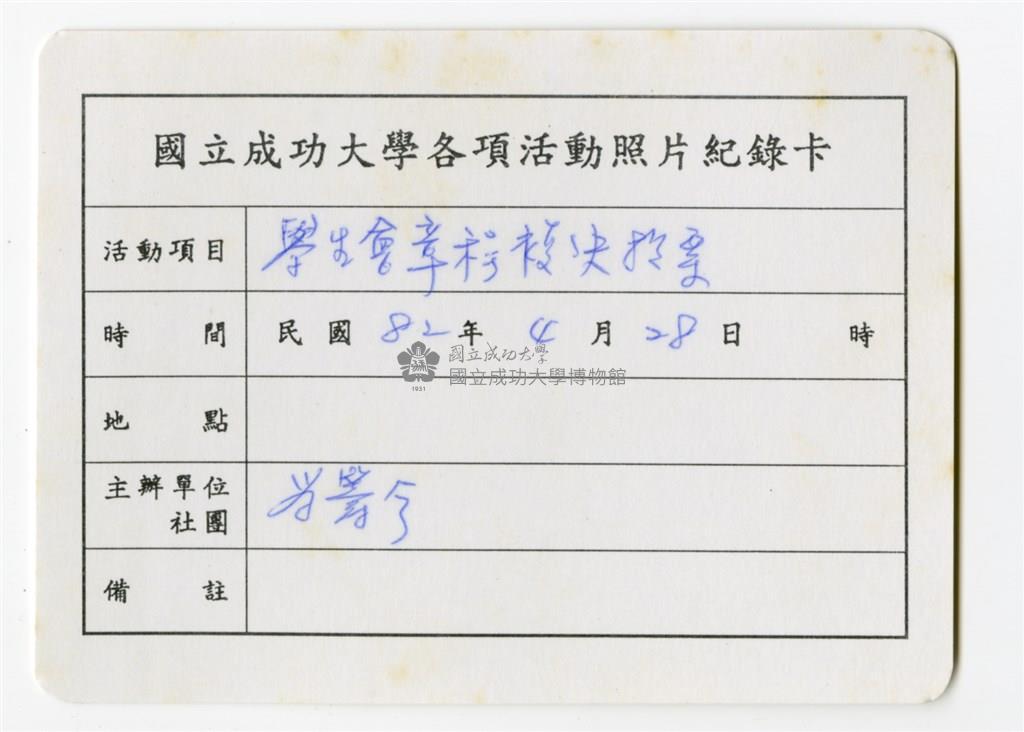 國立成功大學各項活動照片紀錄卡
活動項目 學生會章程複決投票
時間 民國 82 年 4 月 28 日 時
國立成功大學
國立成功大學博物館
1931
地點
主辦單位社團 学籌会
備註